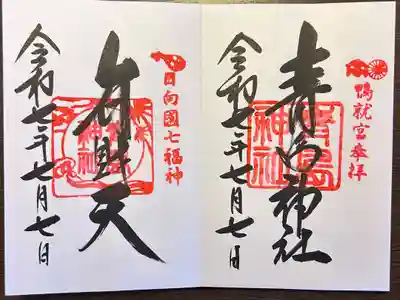 鴨就宮奉拝
青島神社
青島神社
令和七年七月七日
日向國七福神
弁財天
令和七年七月七日